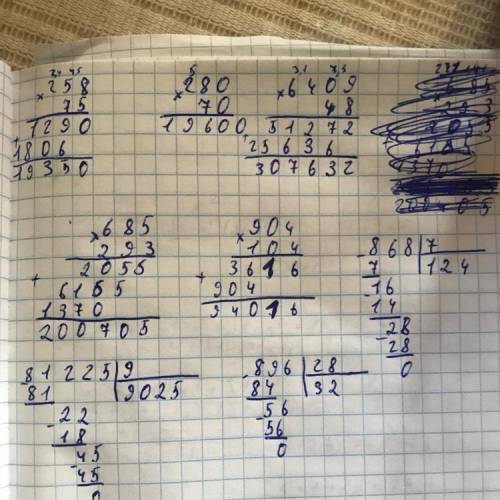 24 45
258
× 75
1290
+
1806
19350
5
280
× 70
19600
31 73
6409
× 48
51272
+
25636
307632
685
× 293
2055
+
6165
1370
200705
904
× 104
3616
+
904
94016
- 868 | 7
7 | 124
- 16
14
- 28
28
0
81225 | 9
81 | 9025
- 22
18
- 45
45
0
- 896 | 28
84 | 32
- 56
56
0